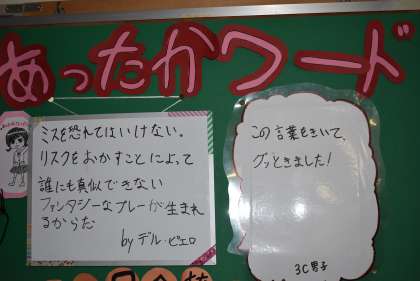 あったかワード
ミスを恐れてはいけない。
リスクをおかすことによって
誰にも真似できない
ファンタジーなプレーが生まれ
るからだ
by デル・ピエロ
この言葉をきいて、
グッときました!
3C男子